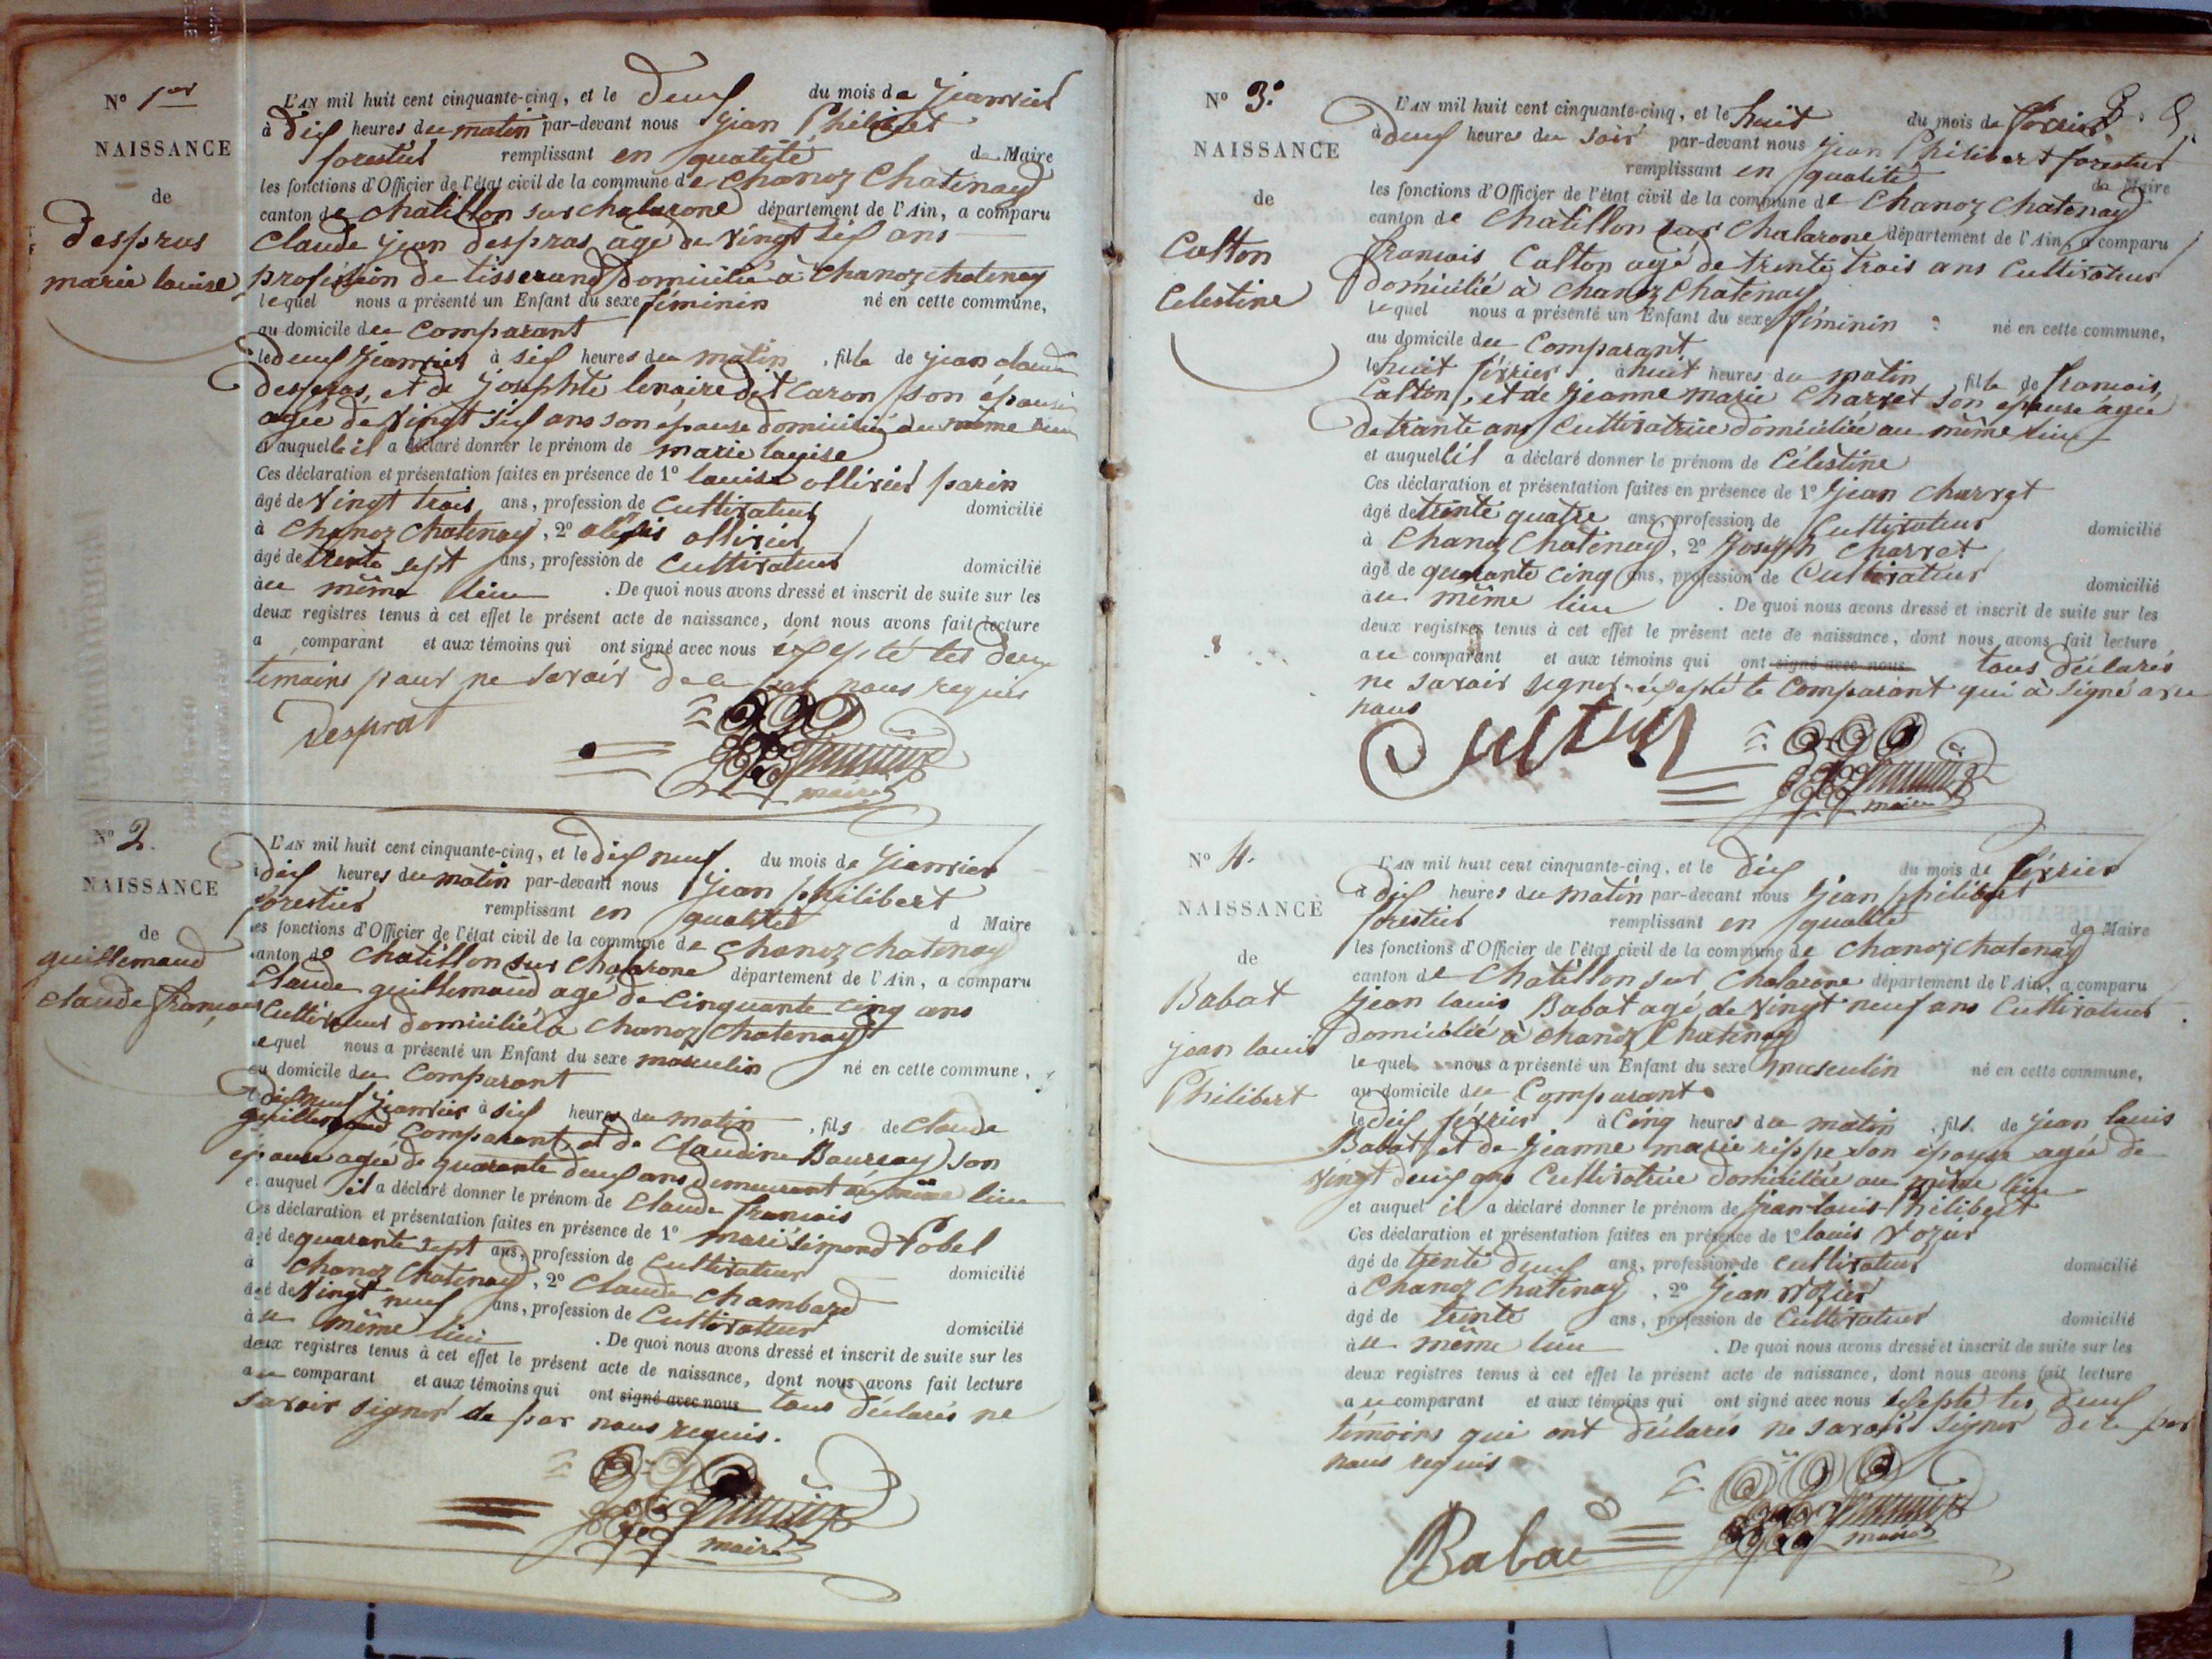 N° 1er
NAISSANCE
de
despras
marie louise
L'AN mil huit cent cinquante-cinq, et le deux du mois de janvier
à dix heures du matin par-devant nous jean Philibert
forestier remplissant en qualité de Maire
les fonctions d'Officier de l'état civil de la commune de Chanoz Chatenay
canton de Chatillon sur chalarone département de l'Ain, a comparu
Claude jean despras agé de vingt six ans
profession de tisserand domicilié à Chanoz chatenay
lequel nous a présenté un Enfant du sexe féminin né en cette commune,
au domicile du Comparant
le deux janvier à six heures du matin, fille de jean claude
despras, et de josephte lenaire dit Caron son épouse
agée de vingt six ans son epouse domiciliée du même lieu
et auquelle il a déclaré donner le prénom de marie louise
Ces déclaration et présentation faites en présence de 1° louis ollivier parin
âgé de vingt trois ans, profession de Cultivateur domicilié
à Chanoz Chatenay, 2° alexis ollivier
âgé de trente sept ans, profession de Cultivateur domicilié
au même lieu. De quoi nous avons dressé et inscrit de suite sur les
deux registres tenus à cet effet le présent acte de naissance, dont nous avons fait lecture
a comparant et aux témoins qui ont signé avec nous éxepté les deux
temoins pour ne savoir de ce par nous requis
desprat
maire
N° 2.
NAISSANCE
de
guillemaud
Claude françois
L'AN mil huit cent cinquante-cinq, et le dix neuf du mois de janvier
à dix heures du matin par-devant nous jean philibert
forestier remplissant en qualité d Maire
les fonctions d'Officier de l'état civil de la commune de Chanoz chatenay
canton de Chatillon sur Chalarone département de l'Ain, a comparu
Claude guillemaud age de Cinquante cinq ans
Cultivateur domicilié à Chanoz Chatenay
lequel nous a présenté un Enfant du sexe masculin né en cette commune,
au domicile du Comparant
le dix neuf janvier à six heures du matin, fils de Claude
guillemaud Comparant, et de Claudine Bourcay son
épouse agée de quarante deux ans demeurant au même lieu
et auquel il a déclaré donner le prénom de Claude françois
Ces déclaration et présentation faites en présence de 1° marie simond Pobel
âgé de quarante sept ans, profession de Cultivateur domicilié
à Chanoz Chatenay, 2° Claude Chambard
âgé de vingt neuf ans, profession de Cultivateur domicilié
au même lieu. De quoi nous avons dressé et inscrit de suite sur les
deux registres tenus à cet effet le présent acte de naissance, dont nous avons fait lecture
au comparant et aux témoins qui ont signé avec nous tous déclarés ne
savoir signer de par nous requis.
maire
N° 3.
NAISSANCE
de
Catton
Celestine
L'AN mil huit cent cinquante-cinq, et le huit du mois de février
à deux heures du soir par-devant nous jean Philibert forestier
remplissant en qualité de Maire
les fonctions d'Officier de l'état civil de la commune de Chanoz chatenay
canton de Chatillon sur Chalarone département de l'Ain, a comparu
francois Catton agé de trente trois ans Cultivateur
domicilié à Chanoz Chatenay
lequel nous a présenté un Enfant du sexe féminin né en cette commune,
au domicile du Comparant
le huit février à huit heures du matin, fille de francois
Catton, et de jeanne marie Charvet son épouse agée
de trante ans Cultivatrice domiciliée au même lieu
et auquelle il a déclaré donner le prénom de Célestine
Ces déclaration et présentation faites en présence de 1° jean charvet
âgé de trente quatre ans, profession de Cultivateur domicilié
à Chanoz Chatenay, 2° joseph Charvet
âgé de quarante cinq ans, profession de Cultivateur domicilié
au même lieu. De quoi nous avons dressé et inscrit de suite sur les
deux registres tenus à cet effet le présent acte de naissance, dont nous avons fait lecture
au comparant et aux témoins qui ont signé avec nous tous déclarés
ne savoir signer éxepté le Comparant qui à signé avec
nous
Catton
maire
N° 4.
NAISSANCE
de
Babat
jean louis
Philibert
L'AN mil huit cent cinquante-cinq, et le dix du mois de février
à dix heures du matin par-devant nous jean philibert
forestier remplissant en qualité de Maire
les fonctions d'Officier de l'état civil de la commune de Chanoz chatenay
canton de Chatillon sur Chalarone département de l'Ain, a comparu
jean louis Babat agé de vingt neuf ans Cultivateur
domicilié à Chanoz Chatenay
lequel nous a présenté un Enfant du sexe masculin né en cette commune,
au domicile du Comparant
le dix février à Cinq heures du matin, fils de jean louis
Babat et de jeanne marie rippe son épouse agée de
vingt deux ans Cultivatrice domiciliée au même lieu
et auquel il a déclaré donner le prénom de jean louis Philibert
Ces déclaration et présentation faites en présence de 1° louis Vozier
âgé de trente deux ans, profession de Cultivateur domicilié
à Chanoz Chatenay, 2° jean Vozier
âgé de trente ans, profession de Cultivateur domicilié
au même lieu. De quoi nous avons dressé et inscrit de suite sur les
deux registres tenus à cet effet le présent acte de naissance, dont nous avons fait lecture
au comparant et aux témoins qui ont signé avec nous exepté les deux
témoins qui ont déclarés ne savoir signer de ce par
nous requis
Babat
maire